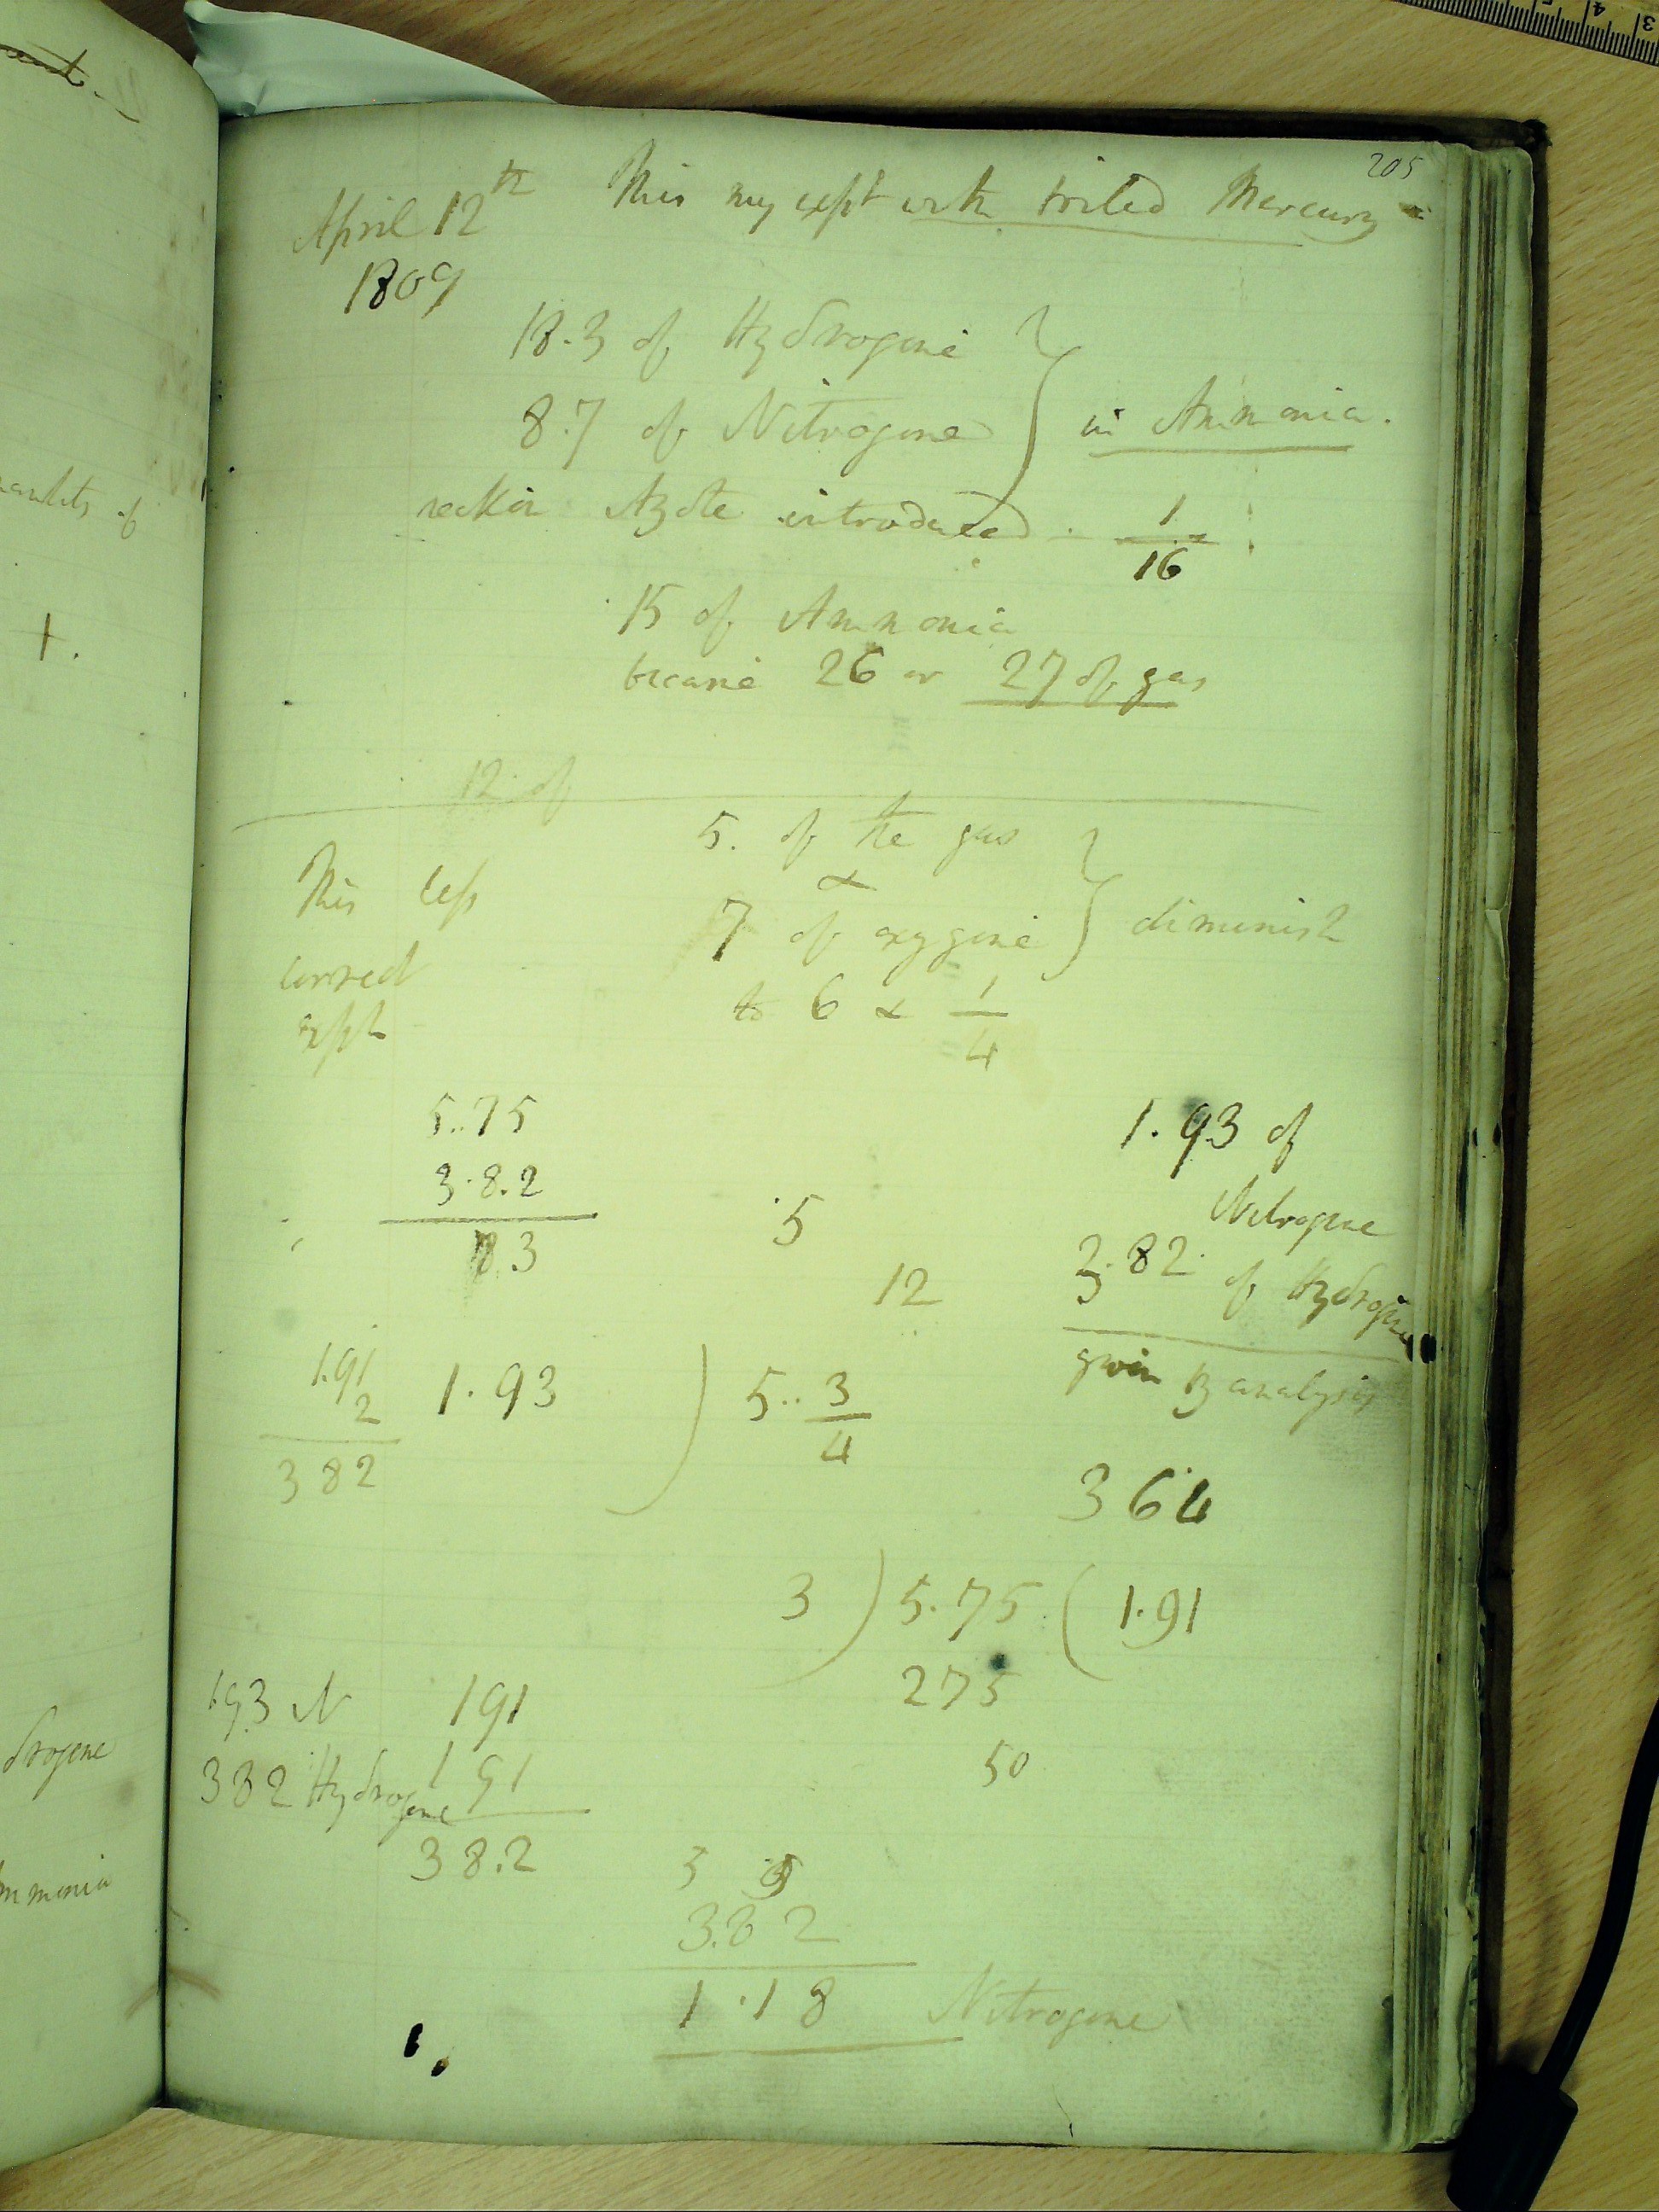 205
April 12th This my expt with boiled Mercury -
1809
18.3 of Hydrogene
8.7 of Nitrogene } in Ammonia.
reckon Azote introduced - 1/16
15 of Ammonia
became 26 or 27 of gas
12 of
5. of the gas
&
7 of oxygene } diminish
to 6 & 1/4
This less
correct
expt -
5..75
3.8.2
3
.5
12
1.93 of
Nitrogene
3.82 of Hydrogene
given by analysis
1.91
2
382
1.93 ) 5.. 3/4
364
3 ) 5.75 ( 1.91
275
50
1.93 N
382 Hydrogene
191
191
38.2
3.82
1.18 Nitrogene
drogene
mmonia
of
+.
3
4
5